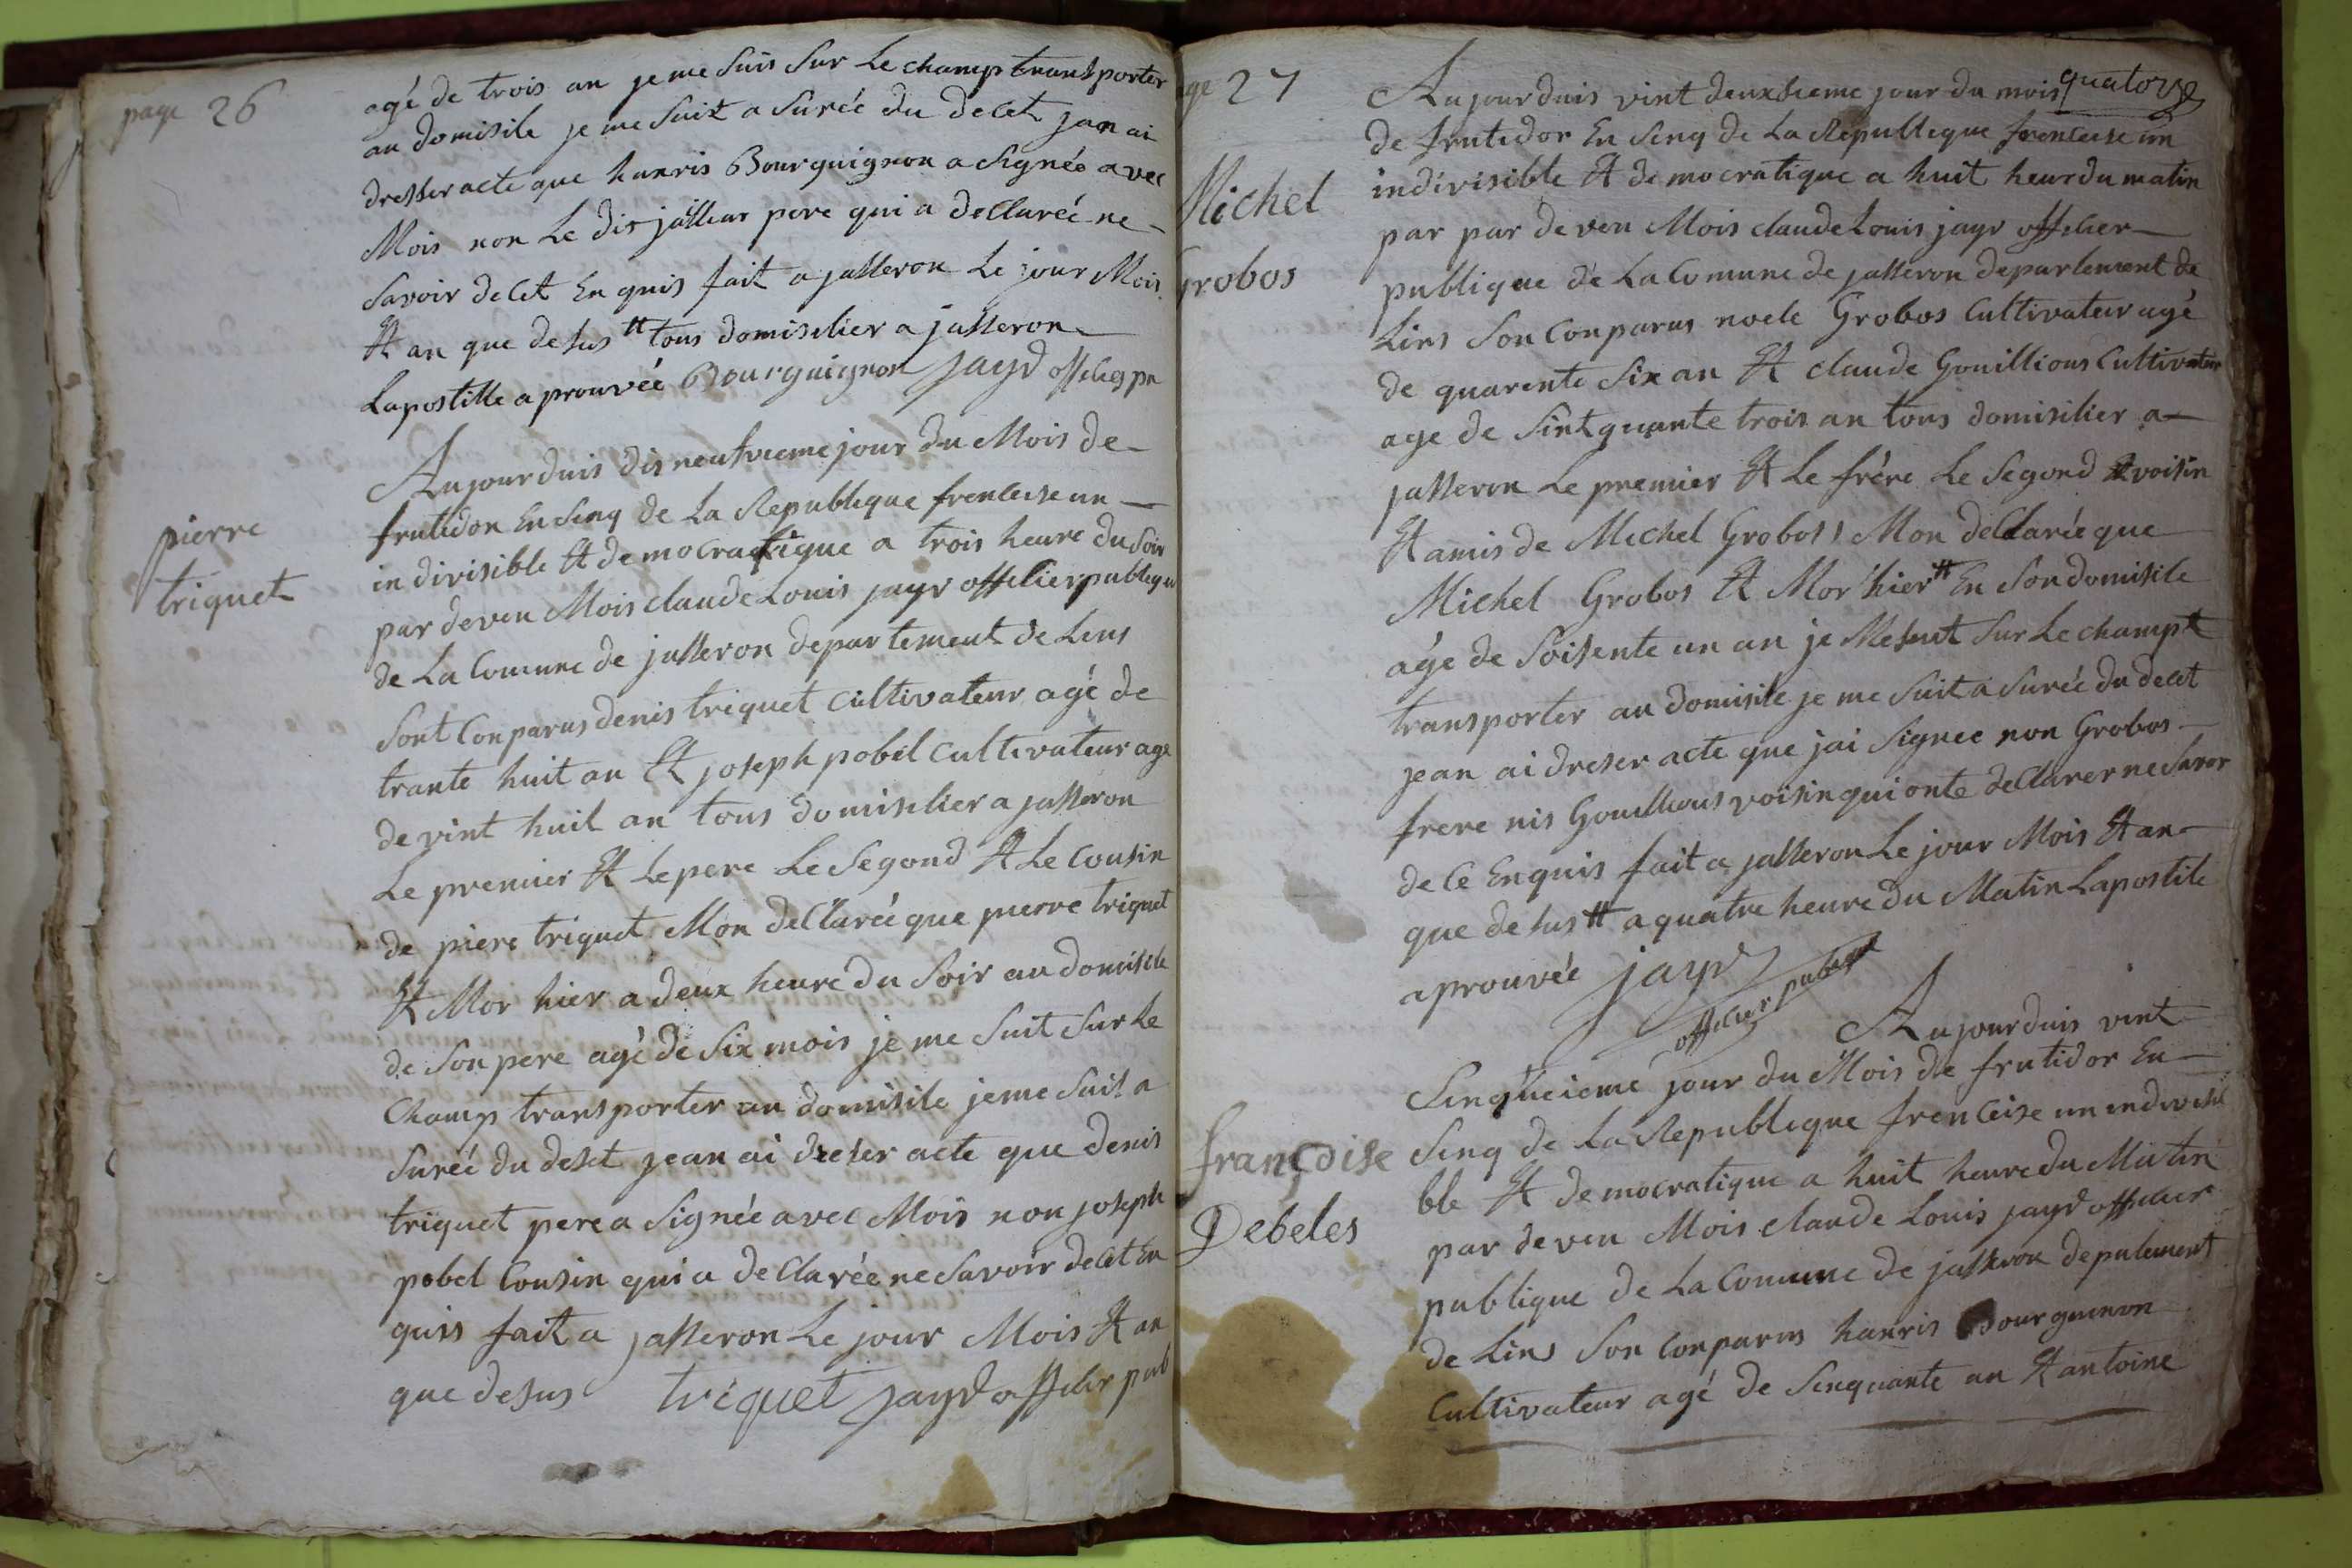 page 26
agé de trois an je me suis sur Le champ transporter
au domisile je me suit a surée du decet jan ai
dresser acte que hanris Bourguignon a signée avec
Mois non Le dis jasseur pere qui a declareé ne
savoir de cet enquis fait a jasseron Le jour Mois
Et an que desus # tous domisilier a jasseron
Lapostille a prouvéé Bourguignon jayr officier pu
pierre
triquet
Aujourduis dis neufvieme jour du Mois de
frutidor En sinq de La Republique frenceise un
indivisible Et democratique a trois heure du soir
par deven Mois claude Louis jayr officier publique
de La Comune de jasseron departement de Lins
sont Conparus denis triquet cultivateur agé de
trante huit an Et joseph pobel cultivateur age
de vint huit an tous domisilier a jasseron
Le premier Et Le pere Le segond Et Le cousin
de piere triquet Mon declareé que pierre triquet
Et Mor hier a deux heure du soir au domisile
de son pere agé de six mois je me suit sur Le
champ transporter au domisile je me suit a
sureé du deset jean ai dreser acte que denis
triquet pere a signée avec Mois non joseph
pobel Cousin qui a declarée ne savoir de cet En
quis fait a jasseron Le jour Mois Et an
que desus triquet jayr officier pub
ge 27
quatorze
Michel
Grobos
Aujourduis vint deuxsieme jour du mois
de frutidor En sinq de La Republique frenceise un
indivisible Et democratique a huit heur du matin
par par deven Mois claude Louis jayr officier
publique de La Comune de jasseron departement de
Lins son Conparus noele Grobos Cultivateur agé
de quarente six an Et claude Gouillious Cultivateur
age de sintquante trois an tous domisilier a
jasseron Le premier Et Le frère Le segond Et voisin
Et amis de Michel Grobos Mon declarée que
Michel Grobos Et Mor hier # En son domisile
agé de soisente un an je Me suit sur Le champt
transporter au domisile je me suit a surée du decet
jean ai dreser acte que jai signee non Grobos
frere nis Gouillious voisin qui onte declarer ne savor
de ce Enquis fait a jasseron Le jour Mois Et an
que desus # a quatre heure du Matin Lapostile
aprouvée jayr
officier publique
françoise
Debeles
Aujourduis vint
sinqucieme jour du Mois de frutidor En
sinq de La Republique frenceise un indivisi
ble Et democratique a huit heure du Matin
par deven Mois claude Louis jayr officier
publique de La Comune de jasseron depatement
de Lins son Conparus hanris Bourguinon
Cultivateur agé de sinquante an Et antoine